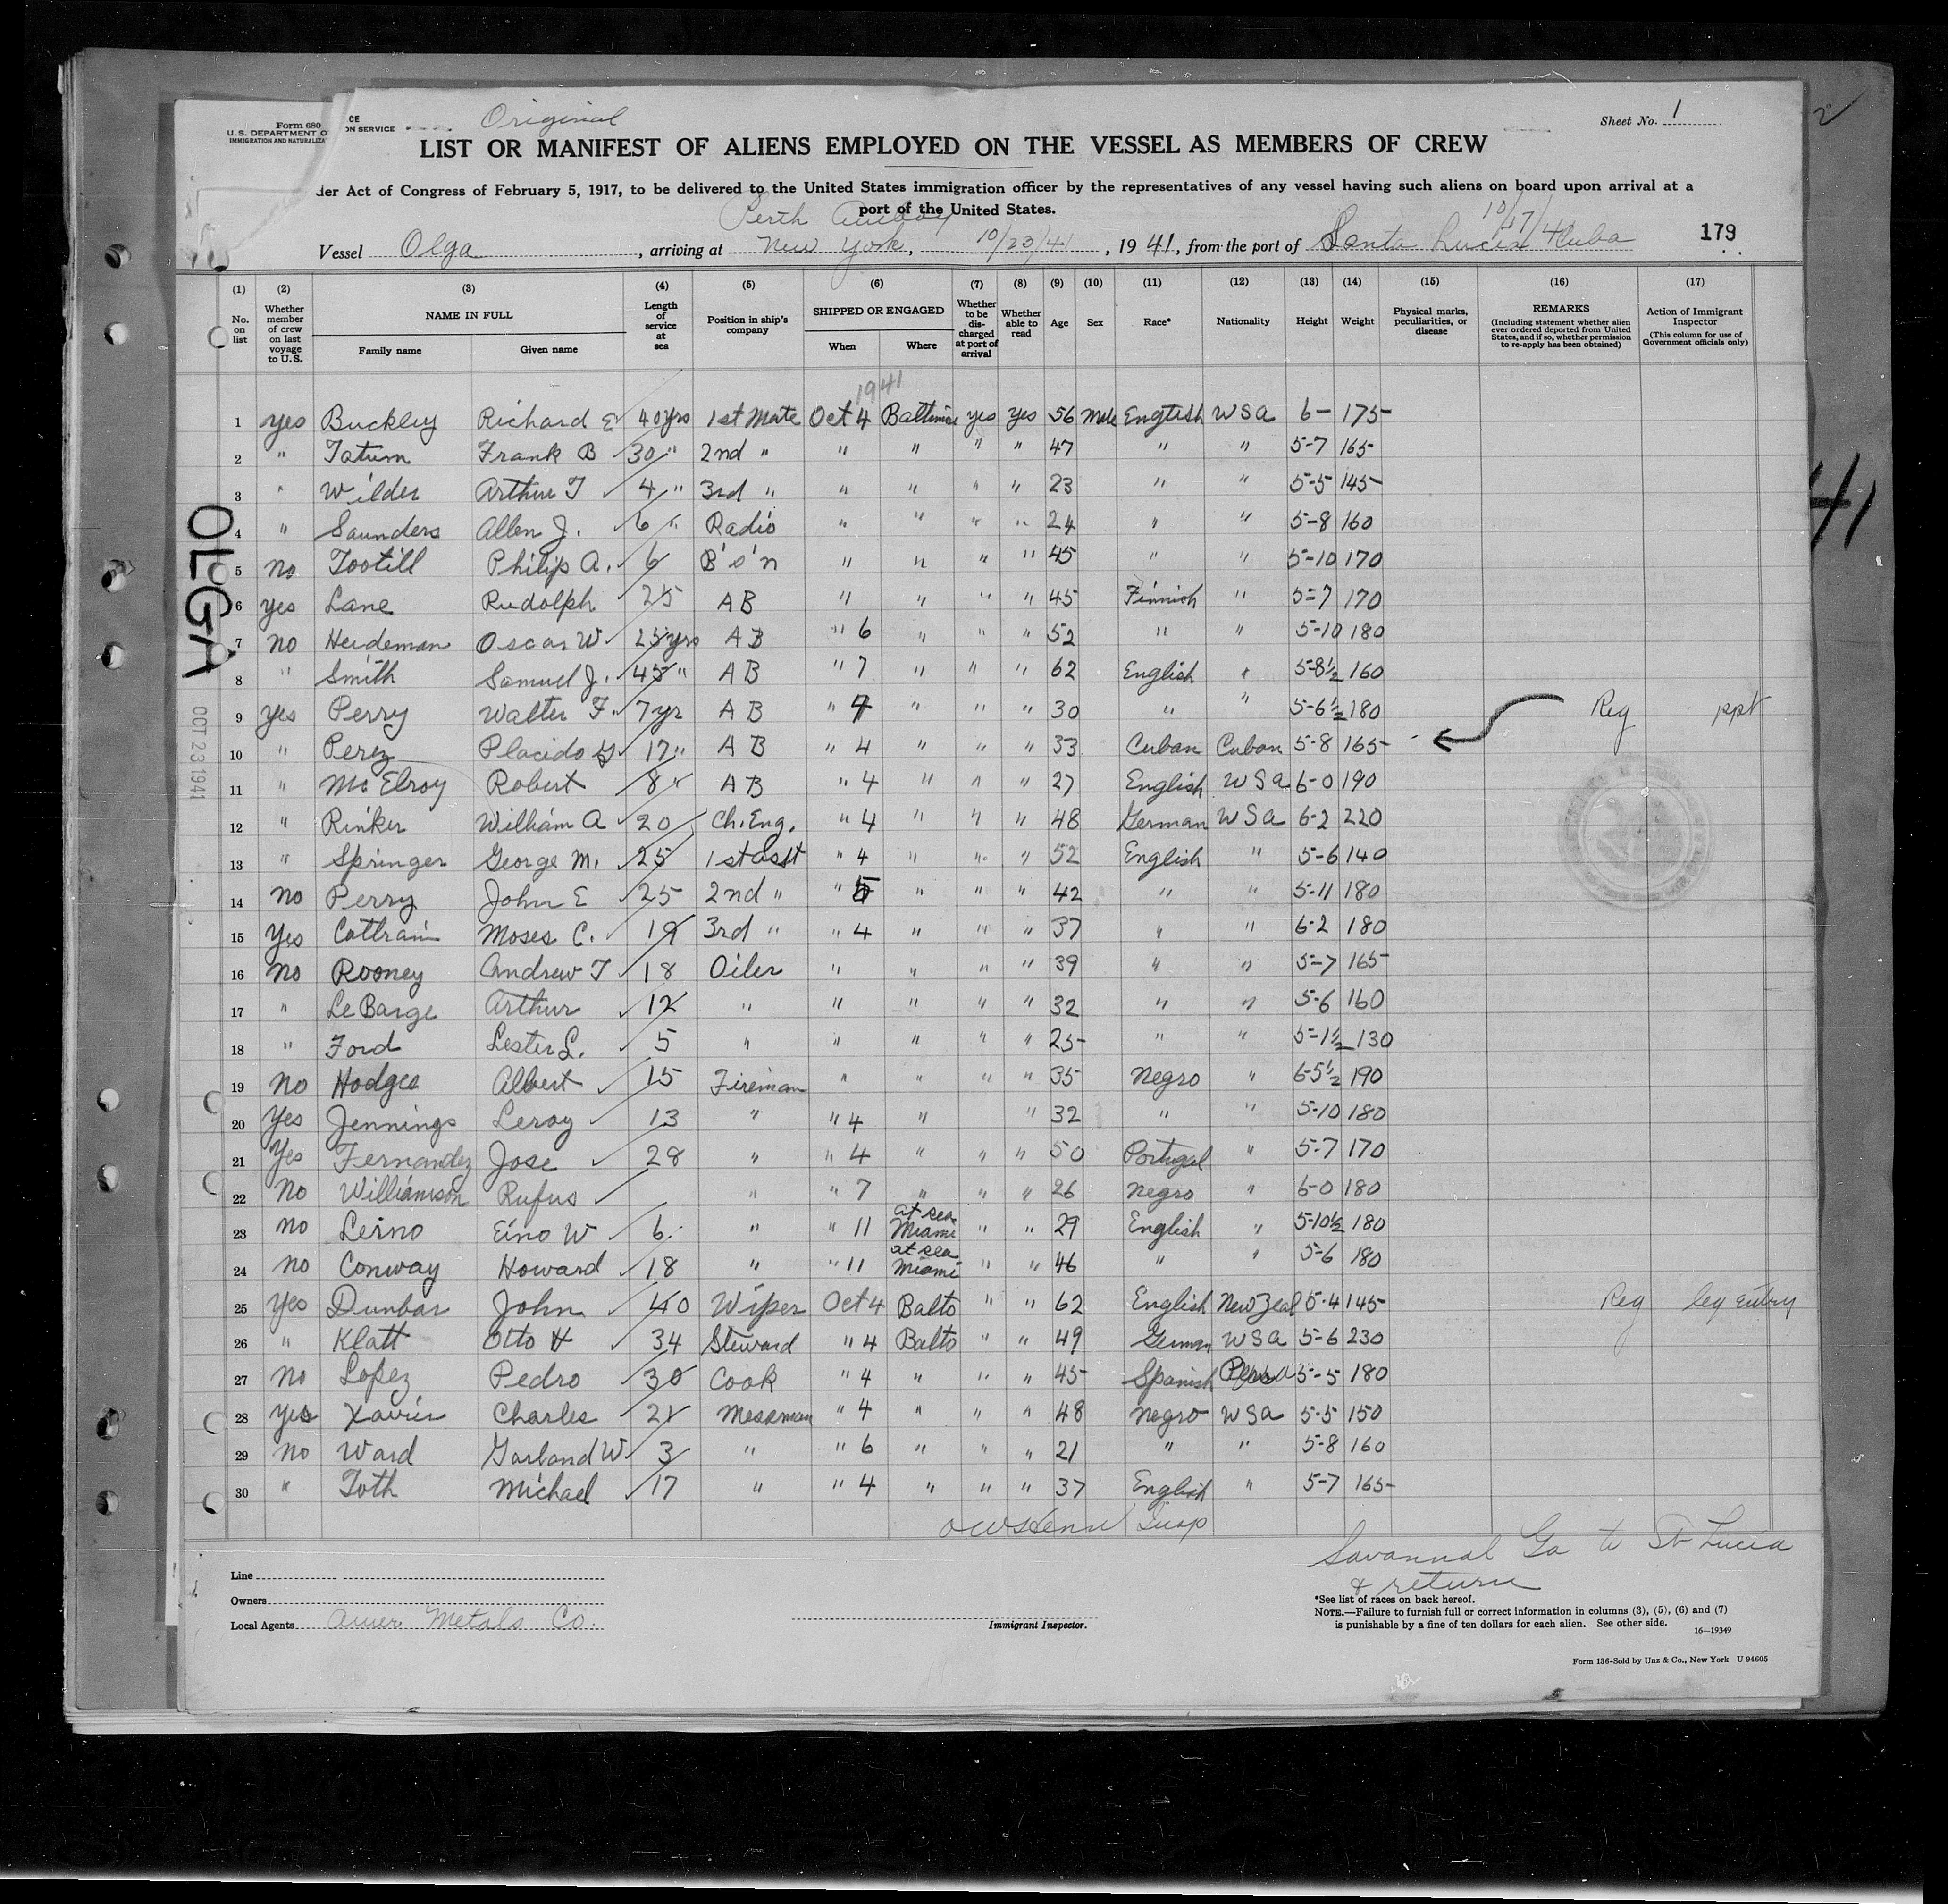 Original
Form 680
U.S. DEPARTMENT O
IMMIGRATION AND NATURALIZA
CE
ON SERVICE
Sheet No. 1
2
LIST OR MANIFEST OF ALIENS EMPLOYED ON THE VESSEL AS MEMBERS OF CREW
der Act of Congress of February 5, 1917, to be delivered to the United States immigration officer by the representatives of any vessel having such aliens on board upon arrival at a
port of the United States.
Perth Amboy
10/17/41
Vessel Olga, arriving at New York, 10/23/41, 19 41, from the port of Santa Lucia Cuba
179
(1) (2) (3) (4) (5) (6) (7) (8) (9) (10) (11) (12) (13) (14) (15) (16) (17)
No. on list
Whether member of crew on last voyage to U.S.
NAME IN FULL
Family name Given name
Length of service at sea
Position in ship's company
SHIPPED OR ENGAGED
When Where
Whether to be discharged at port of arrival
Whether able to read
Age
Sex
Race*
Nationality
Height
Weight
Physical marks, peculiarities, or disease
REMARKS
(Including statement whether alien ever ordered deported from United States, and if so, whether permission to re-apply has been obtained)
Action of Immigrant Inspector
(This column for use of Government officials only)
1941
1 yes Buckley Richard E 40yrs 1st Mate Oct 4 Baltimore yes yes 56 Male English USA 6- 175
2 " Tatum Frank B 30 " 2nd " " " " " 47 " " 5-7 165
3 " Wilder Arthur T 4 " 3rd " " " " " 23 " " 5-5 145
4 " Saunders Allen J. 6 " Radio " " " " 24 " " 5-8 160
5 no Tootill Philip A. 6 B's'n " " " " 45 " " 5-10 170
6 yes Lane Rudolph 25 AB " " " " 45 Finnish " 5-7 170
7 no Heideman Oscar W 25yrs AB " 6 " " " 52 " " 5-10 180
8 " Smith Samuel J. 45 " AB " 7 " " " 62 English " 5-8½ 160
9 yes Perry Walter F. 7yr AB " 4 " " " 30 " " 5-6½ 180 Reg ppt
10 " Perez Placido 17 " AB " 4 " " " 33 Cuban Cuban 5-8 165
11 " McElroy Robert 8 " AB " 4 " " " 27 English USA 6-0 190
12 " Rinker William A 20 Ch. Eng. " 4 " " " 48 German USA 6-2 220
13 " Springer George M. 25 1st Asst " 4 " " " 52 English " 5-6 140
14 no Perry John E 25 2nd " " 5 " " " 42 " " 5-11 180
15 Yes Cottrain Moses C. 19 3rd " " 4 " " " 37 " " 6-2 180
16 no Rooney Andrew T 18 Oiler " " " " 39 " " 5-7 165
17 " LeBarge Arthur 12 " " " " " 32 " " 5-6 160
18 " Ford Lester L. 5 " " " " " 25 " " 5-1½ 130
19 no Hodges Albert 15 Fireman " " " " 35 Negro " 6-5½ 190
20 Yes Jennings Leroy 13 " " 4 " " 32 " " 5-10 180
21 Yes Fernandez Jose 28 " " 4 " " " 50 Portugal " 5-7 170
22 No Williamson Rufus " " 7 " " " 26 Negro " 6-0 180
23 no Leino Eino W 6 " " 11 at sea Miami " " 29 English " 5-10½ 180
24 no Conway Howard 18 " " 11 at sea Miami " " 46 " " 5-6 180
25 Yes Dunbar John 40 Wiper Oct 4 Balto " " 62 English New Zeal 5-4 145 Reg leg entry
26 " Klatt Otto H 34 Steward " 4 Balto " " 49 German USA 5-6 230
27 no Lopez Pedro 30 Cook " 4 " " " 45 Spanish 5-5 180
28 Yes Xavier Charles 21 Messman " 4 " " " 48 Negro USA 5-5 150
29 no Ward Garland W 3 " " 6 " " " 21 " " 5-8 160
30 " Toth Michael 17 " " 4 " " " 37 English " 5-7 165
Insp
Savannah Ga to St Lucia
& return
Line
Owners
Local Agents Amer Metals Co.
Immigrant Inspector.
*See list of races on back hereof.
NOTE.—Failure to furnish full or correct information in columns (3), (5), (6) and (7)
is punishable by a fine of ten dollars for each alien. See other side.
16—19349
Form 136-Sold by Unz & Co., New York U 94605
OLGA
OCT 23 1941
41